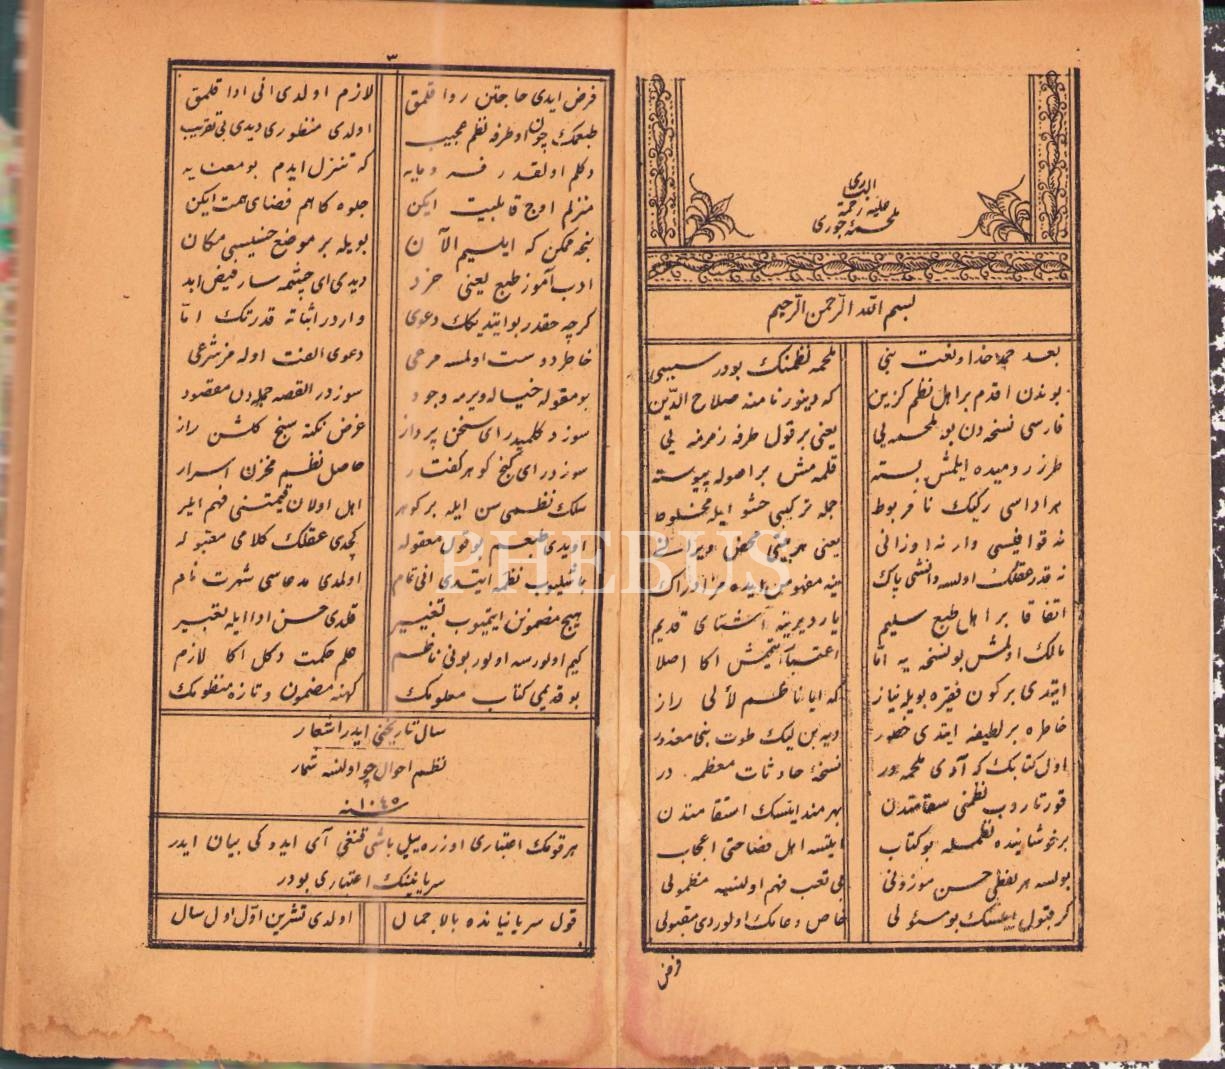 ملحمهٔ جوری
علیه رحمة
الباری
بسم الله الرحمن الرحیم
بعد حمد خدا و نعت نبی ملحمه نظمنك بودر سببی
بوندن اقدم بر اهل نظم كزین كه دینور نامنه صلاح الدّین
فارسی نسخه دن بو ملحمه یی یعنی بر قول طرفه زمزمه یی
طرز رمیده ایلمش بسته قلمه مش بر اصوله پیوسته
هر اداسی ركیك نا مربوط جمله تركیبی حشو ایله مخلوط
نه قوافیسی وار نه اوزانی یعنی هر بیتی محض ویرانی
نه قدر عقلك اولسه دانشی پاك ینه مفهومن ایده مز ادراك
اتفاقا بر اهل طبع سلیم یار دیرینه آشنای قدیم
مالك اولمش بو نسخه یه امّا اعتبار ایتمیش اكا اصلا
ایتدی بر كون فقیره بویله نیاز كه ایا ناظم لألی راز
خاطره بر لطیفه ایتدی خطور دیه بن لیك طوت بنی معذور
اول كتابك كه آدی ملحمه در نسخهٔ حادثات معظمه در
قورتاروب نظمنی سقامتدن بهره مند ایتسك استقامتدن
بر خوشاینده نظمله بو كتاب ایتسه اهل فصاحتی اعجاب
بولسه هر لفظی حسن موزونی بی تعب فهم اولنسه مضمونی
كر قبول ایلسك بو مسئولی خاص و عامك اولوردی مقبولی
فرض
٣
فرض ایدی حاجتن روا قلمق لازم اولدی انی ادا قلمق
طبعمك چون او طرفه نظم عجیب اولدی منظوری دیدی بی تقریب
دكلم اولقدر فرومایه كه تنزل ایدم بو معنایه
منزلم اوج قابلیت ایكن جلوه كاهم فضای همت ایكن
نیجه ممكن كه ایلیم الآن بویله بر موضع خسیسی مكان
ادب آموز طبع یعنی خرد دیدی ای چشمه سار فیض ابد
كرچه حقدر بو ایتدیكك دعوی واردر اثباته قدرتك امّا
خاطر دوست اولمسه مرعی دعوی الفت اوله مز شرعی
بو مقوله خیاله ویرمه وجود سوزدر القصه جمله دن مقصود
سوزدكلمیدر ای سخن پرداز غرض نكته سنج كلشن راز
سوزدر ای كنج كوهر كفتار حاصل نظم مخزن اسرار
سلك نظمی سن ایله بر كوهر اهل اولان قیمتنی فهم ایلر
اویدی طبعم بو قول معقوله كچدی عقلك كلامی مقبوله
باشلیوب نظمه ایتدی انی تمام اولمدی مدعاسی شهرت نام
هیچ مضمونن ایتمیوب تغییر قلدی حسن ادا ایله تعبیر
كیم اولورسه اولور بونی ناظم علم حكمت دكل اكا لازم
بو قدیمی كتاب معلومك كهنه مضمون و تازه منظومك
سال تاریخنی ایدر اشعار
نظم احوال جو اولنسه شمار
سنه ١٠٤٥
هر قومك اعتباری اوزره ییل باشی قنغی آی ایدوكی بیان ایدر
سریانینك اعتباری بودر
قول سریانیانده بالاجمال اولدی تشرین اوّل اول سال